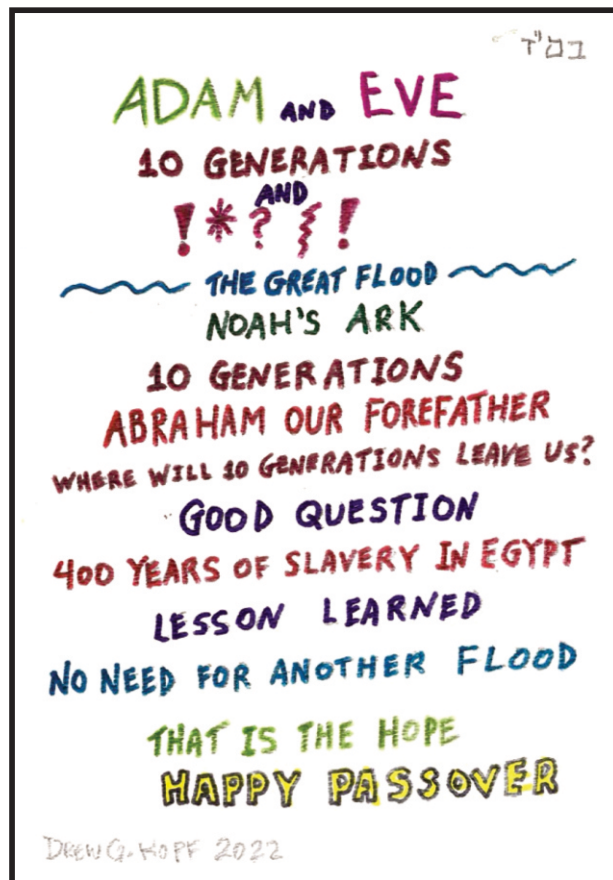 בס"ד
ADAM AND EVE
10 GENERATIONS
AND
!*?}!
THE GREAT FLOOD
NOAH'S ARK
10 GENERATIONS
ABRAHAM OUR FOREFATHER
WHERE WILL 10 GENERATIONS LEAVE US?
GOOD QUESTION
400 YEARS OF SLAVERY IN EGYPT
LESSON LEARNED
NO NEED FOR ANOTHER FLOOD
THAT IS THE HOPE
HAPPY PASSOVER
DREW G. KOPF 2022